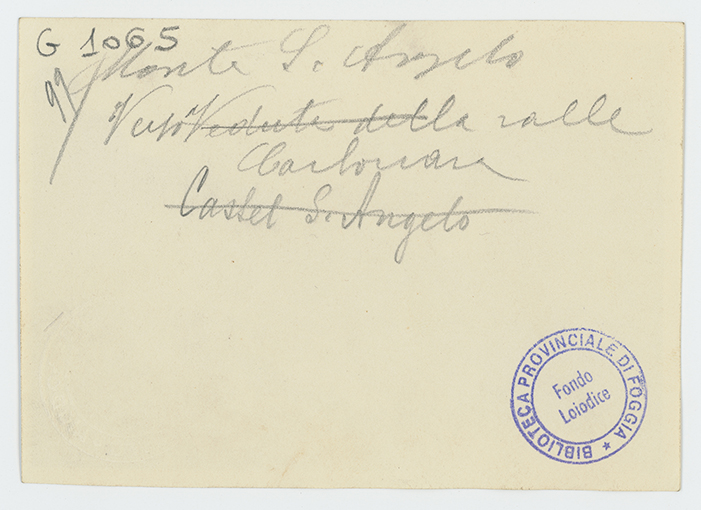 G 1065
Monte S. Angelo
Verso Vedute della valle
Carbonara
Castel S. Angelo
BIBLIOTECA PROVINCIALE DI FOGGIA *
Fondo
Loiodice